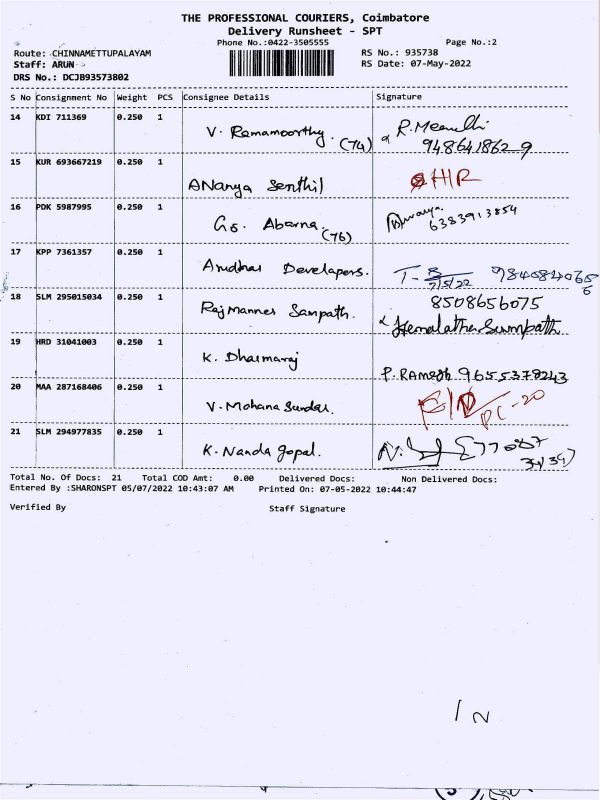 THE PROFESSIONAL COURIERS, Coimbatore
Delivery Runsheet - SPT
Phone No.:0422-3505555 Page No.:2
Route: CHINNAMETTUPALAYAM RS No.: 935738
Staff: ARUN RS Date: 07-May-2022
DRS No.: DCJB93573802
S No Consignment No Weight PCS Consignee Details Signature
14 KDI 711369 0.250 1
V. Ramamoorthy. (74) R. Meenakshi
9486418629
15 KUR 693667219 0.250 1
ANanya Senthil H/R
16 PDK 5987995 0.250 1
GS. Abarna. (76) 6383913854
17 KPP 7361357 0.250 1
Arudhra Developers. T-B 7/5/22
18 SLM 295015034 0.250 1 8508656075
Rajmannes Sampath. Hemalatha Sumpath
19 HRD 31041003 0.250 1
K. Dharmaraj P. RAMESh 9655378243
20 MAA 287168406 0.250 1
V. Mohana Sundar. PC-20
21 SLM 294977835 0.250 1
K. Nanda gopal. N.
Total No. Of Docs: 21 Total COD Amt: 0.00 Delivered Docs: Non Delivered Docs:
Entered By :SHARONSPT 05/07/2022 10:43:07 AM Printed On: 07-05-2022 10:44:47
Verified By Staff Signature
IN